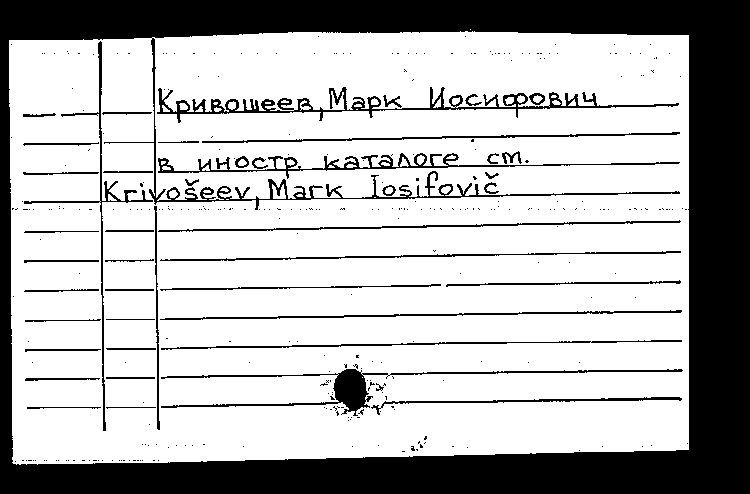 Кривошеев, Марк Иосифович
в иностр. каталоге см.
Krivošeev, Mark Iosifovič